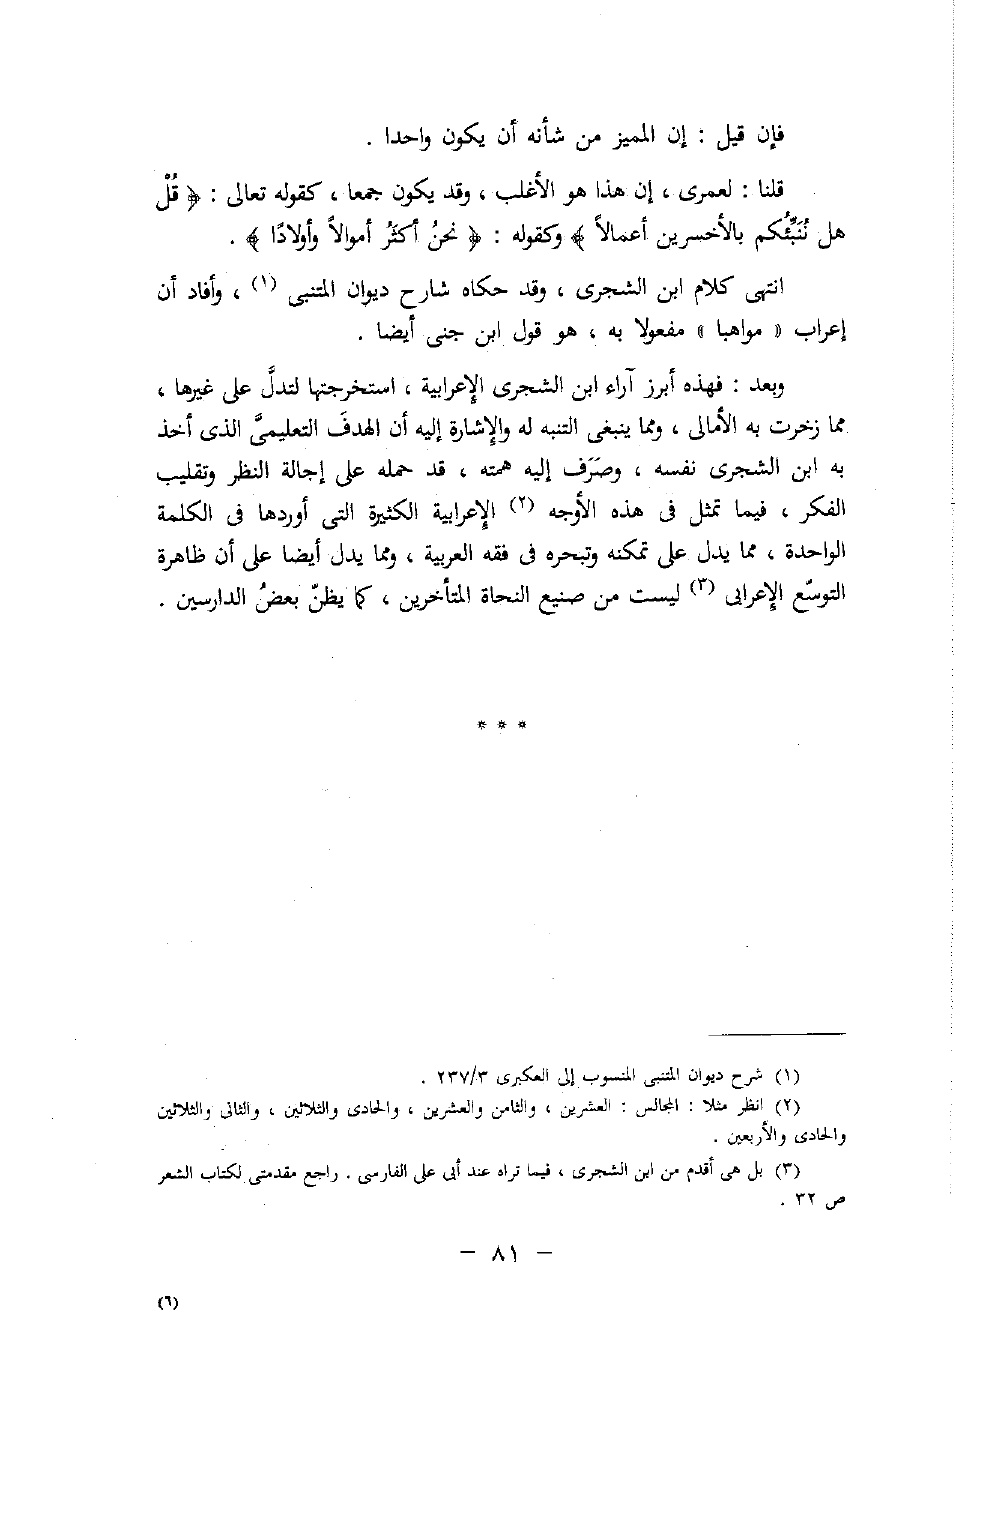 فإن قيل : إن المميز من شأنه أن يكون واحدا .
قلنا : لعمرى ، إن هذا هو الأغلب ، وقد يكون جمعا ، كقوله تعالى : ﴿ قُلْ
هل نُنَبِّئُكم بالأخسرين أعمالاً ﴾ وكقوله : ﴿ نحنُ أكثرُ أموالاً وأولادًا ﴾ .
انتهى كلام ابن الشجرى ، وقد حكاه شارح ديوان المتنبى (١) ، وأفاد أن
إعراب « مواهبا » مفعولا به ، هو قول ابن جنى أيضا .
وبعد : فهذه أبرز آراء ابن الشجرى الإعرابية ، استخرجتها لتدلَّ على غيرها ،
مما زخرت به الأمالى ، ومما ينبغى التنبه له والإشارة إليه أن الهدفَ التعليمىَّ الذى أخذ
به ابن الشجرى نفسه ، وصَرَف إليه همته ، قد حمله على إجالة النظر وتقليب
الفكر ، فيما تمثل فى هذه الأوجه (٢) الإعرابية الكثيرة التى أوردها فى الكلمة
الواحدة ، مما يدل على تمكنه وتبحره فى فقه العربية ، ومما يدل أيضا على أن ظاهرة
التوسّع الإعرابى (٣) ليست من صنيع النحاة المتأخرين ، كما يظنّ بعضُ الدارسين .
* * *
(١) شرح ديوان المتنبى المنسوب إلى العكبرى ٢٣٧/٣ .
(٢) انظر مثلا : المجالس : العشرين ، والثامن والعشرين ، والحادى والثلاثين ، والثانى والثلاثين
والحادى والأربعين .
(٣) بل هى أقدم من ابن الشجرى ، فيما تراه عند أبى على الفارسى . راجع مقدمتى لكتاب الشعر
ص ٣٢ .
– ٨١ –
(٦)